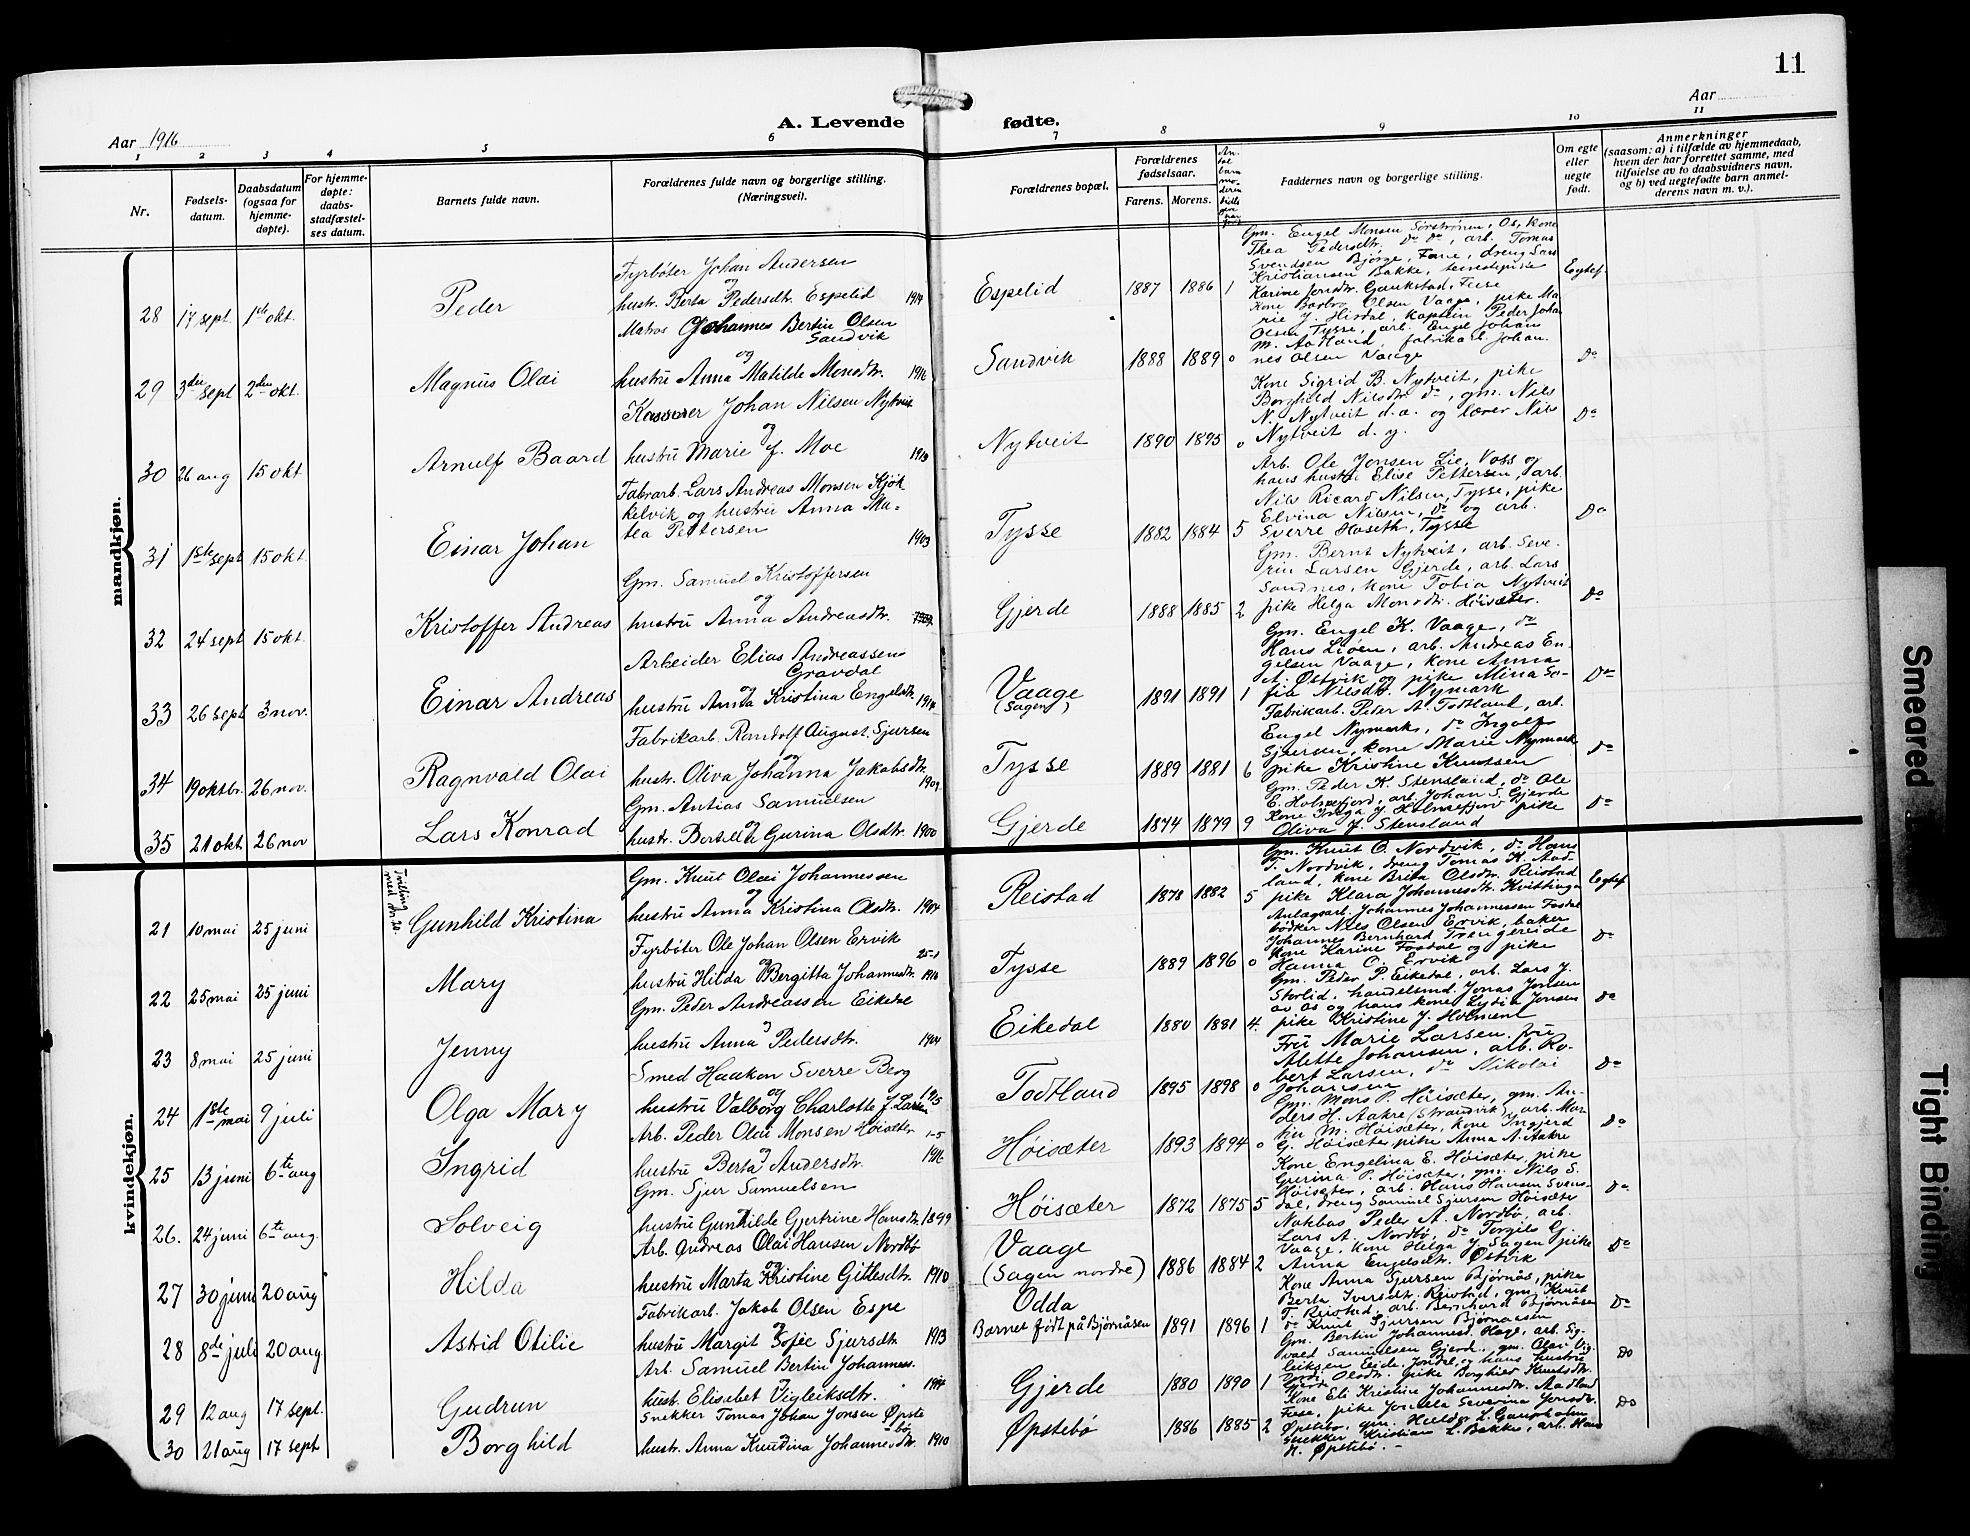 11
Aar 1916
A. Levende fødte.
Aar
1 2 3 4 5 6 7 8 9 10 11
Nr.
Fødsels-
datum.
Daabsdatum
(ogsaa for
hjemme-
døpte).
For hjemme-
døpte:
daabs-
stadfæstel-
ses datum.
Barnets fulde navn.
Forældrenes fulde navn og borgerlige stilling.
(Næringsvei).
Forældrenes bopæl.
Forældrenes
fødselsaar.
Farens. Morens.
Faddernes navn og borgerlige stilling.
Om egte
eller
uegte
født.
Anmerkninger
(saasom: a) i tilfælde av hjemmedaab,
hvem der har forrettet samme, med
tilføielse av to daabsvidners navn,
og b) ved uegtefødte barn anmel-
derens navn m. v.).
mandkjøn.
28 17 sept. 1ste okt. Peder
Fyrbøter Johan Andersen
og
hustr. Berta Pedersdtr. Espelid 1914
Espelid 1887 1886 1
Gm. Engel Monsen Sørstrønen, Os, kone
Thea Pedersdtr. do do, arb. Tomas
Svendsen Bjørge, Fane, dreng Lars
Kristiansen Bakke, tjenestepike
Karine Jonsdtr. Gaukstad, Fuse
Egtef.
29 3die sept 2den okt. Magnus Olai
Matros Johannes Bertin Olsen
Sandvik
og
hustru Anna Matilde Monsdtr. 1916
Sandvik 1888 1889 0
Kone Barbro Olsen Vaage, pike Ma
rie J. Hisdal, kaptein Peder Johan
Olsen Tysse, arb. Engel Johan
M. Aadland, fabrikarb. Johan-
nes Olsen Vaage
Do
30 26 aug 15 okt Arnulf Baard
Kasserer Johan Nilsen Nytveit
og
hustru Marie f. Moe 1913
Nytveit 1890 1895 0
Kone Sigrid B. Nytveit, pike
Borghild Nilsdtr. do, gm. Nils
N. Nytveit d. æ. og lærer Nils
Nytveit d. y.
Do
31 1ste sept 15 okt. Einar Johan
Fabrarb. Lars Andreas Monsen Kjøk
kelvik og hustru Anna Ma-
tea Pettersen 1903
Tysse 1882 1884 5
Arb. Ole Jonsen Lie, Voss og
hans hustru Elise Pettersen, arb.
Nils Ricard Nilsen, Tysse, pike
Elvina Nilsen, do og arb.
Sverre Haseth, Tysse
Do
32 24 sept 15 okt. Kristoffer Andreas
Gm. Samuel Kristoffersen
og
hustru Anna Andreasdtr. 1909
Gjerde 1888 1885 2
Gm. Bernt Nytveit, arb. Seve-
rin Larsen Gjerde, arb. Lars
Sandnes, kone Tobia Nytveit
pike Helga Monsdtr. Høisæter.
Do
33 26 sept 3 nov. Einar Andreas
Arbeider Elias Andreassen
Gravdal
og
hustru Anna Kristina Engelsdtr. 1914
Vaage
(Sagen) 1891 1891 1
Gm. Engel K. Vaage, do
Hans Liøen, arb. Andreas En-
gelsen Vaage, kone Anna
A. Østvik og pike Mina So-
fia Nilsdtr. Nymark
Do
34 19 oktbr. 26 nov. Ragnvald Olai
Fabrikarb. Randolf August Sjursen
og
hustr. Oliva Johanna Jakobsdtr. 1909
Tysse 1889 1881 6
Fabrikarb. Peder A. Todtland, arb.
Engel Nymark, do Ingolf
Sjursen, kone Marie Nymark
pike Kristine Knutsen
Do
35 21 okt. 26 nov Lars Konrad
Gm. Antias Samuelsen
og
hustr. Bertille Gurina Olsdtr. 1900
Gjerde 1874 1879 9
Gm. Peder K. Stensland, do Ole
E. Holmefjord, arb. Johan S. Gjerde
kone Inga J. Holmefjord pike
Oliva J. Stensland
Do
kvindekjøn.
21 10 mai 25 juni
Tvilling
med nr. 20.
Gunhild Kristina
Gm. Knut Olai Johannessen
og
hustru Anna Kristina Olsdtr. 1904
Reistad 1878 1882 5
Gm. Knut O. Nordvik, do Hans
T. Nordvik, dreng Tomas K. Aad-
land, kone Brita Olsdtr. Reistad
pike Klara Johannesdtr. Kvittinge
Egtef
22 25 mai 25 juni Mary
Fyrbøter Ole Johan Olsen Ervik
og
hustru Hilda Bergitta Johannesdtr. 25-1 1916
Tysse 1889 1896 0
Anlægsarb. Johannes Johannessen Fosdal
bødker Nils Olsen Ervik, baker
Johannes Bernhard Trengereide
kone Karine Fosdal og pike
Hanna O. Ervik
Do
23 8 mai 25 juni Jenny
Gm. Peder Andreassen Eikedal
og
hustru Anna Pedersdtr. 1904
Eikedal 1880 1881 4.
Gm. Peder P. Eikedal, arb. Lars J.
Storlid, handelsmd. Jonas Jonsen
av Os og hans kone Lydia Jonsen
pike Kristine J. Holment
Do
24 1ste mai 9 juli Olga Mary
Smed Haakon Sverre Berg
og
hustru Valborg Charlotte f. Larsen 1915
Todtland 1895 1898 0
Fru Marie Larsen, fru
Alette Johansen, arb. Ro-
bert Larsen, do Nikolai
Johansen
Do
25 13 juni 6te aug Ingrid
Arb. Peder Olai Monsen Høisæter
og
hustru Berta Andersdtr. 1-5 1916
Høisæter 1893 1894 0
Gm. Mons P. Høisæter, gm. An-
ders H. Aakre (Strandvik) arb. Mar-
tin M. Høisæter, kone Ingjerd
G. Høisæter pike Anna A. Aakre
Do
26. 24 juni 6te aug. Solveig
Gm. Sjur Samuelsen
hustru Gunhilde Gjertrine Hansdtr. 1899
Høisæter 1872 1875 5
Kone Engelina E. Høisæter, pike
Gurina P. Høisæter, gm. Nils S.
Høisæter, arb. Hans Hansen Svens-
dal, dreng Samuel Sjursen Høisæter
Do
27 30 juni 20 aug Hilda
Arb. Andreas Olai Hansen Nordbø
og
hustru Marta Kristine Gitlesdtr. 1910
Vaage
(Sagen nordre) 1886 1884 2
Natbas Peder A. Nordbø, arb.
Lars A. Nordbø, do Torgils G.
Vaage, kone Helga J. Sagen pike
Anna Engelsdtr. Østvik
Do
28 8de juli 20 aug Astrid Otilie
Fabrikarb. Jakob Olsen Espe
og
hustru Margit Sofie Sjursdtr. 1913
Odda
Barnet født på Bjørnåsen 1891 1896 1
Kone Anna Sjursen Bjørnås, pike
Berta Iversdtr. Reistad, gm. Knut
T. Reistad, arb. Bernhard Bjørnåsen
do Knut Sjursen Bjørnaasen
Do
29 12 aug 17 sept. Gudrun
Arb. Samuel Bertin Johannes.
og
hust. Elisabet Vigleiksdtr. 1914
Gjerde 1880 1890 1
Gm. Bertin Johannesd. Hage, arb. Sig-
vald Samuelsen Gjerd., gm. Olai Vig-
leiksen Eide, Jondal, og hans hustru
Olsdtr. pike Borghild Knutsdtr.
Gjerde
Do
30 21 aug 17 sept Borghild
Snekker Tomas Johan Jonsen Øpste
bø
hustr. Anna Knutina Johannesdtr. 1910
Øpstebø 1886 1885 2
Kone Eli Kristine Johannesdtr. Aadland
Fuse, pike Severina Jonsdtr.
Øpstebø, gm. Haldor L. Gauptholm
snekker Kristian L. Bakke, arb. Hans
K. Øpstebø. -
Do
Smeared
Tight Binding